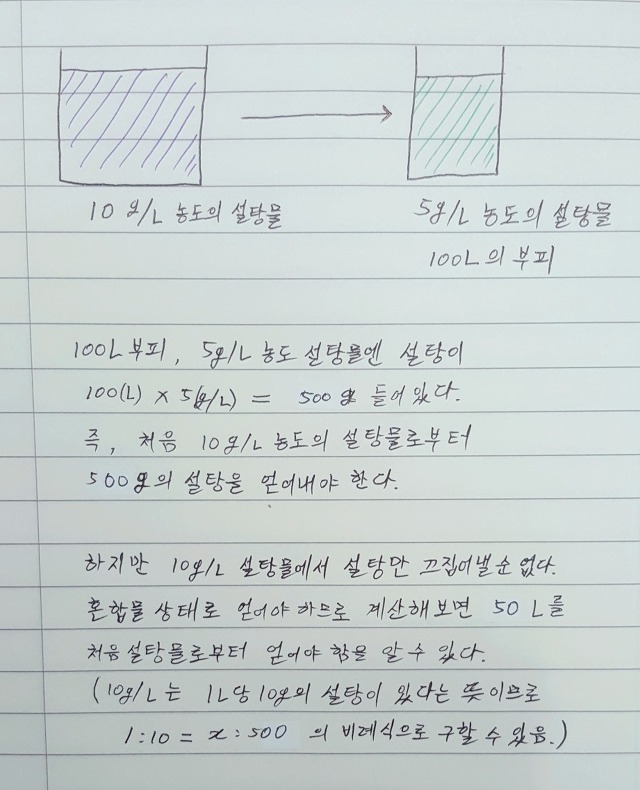 10 g/L 농도의 설탕물
5g/L 농도의 설탕물
100L의 부피
100L 부피, 5g/L 농도 설탕물엔 설탕이
100(L) × 5(g/L) = 500g 들어있다.
즉, 처음 10g/L 농도의 설탕물로부터
500g의 설탕을 얻어내야 한다.
하지만 10g/L 설탕물에서 설탕만 끄집어낼순 없다.
혼합물 상태로 얻어야 하므로 계산해보면 50L를
처음설탕물로부터 얻어야 함을 알 수 있다.
(10g/L는 1L당 10g의 설탕이 있다는 뜻이므로
1:10 = x:500 의 비례식으로 구할 수 있음.)